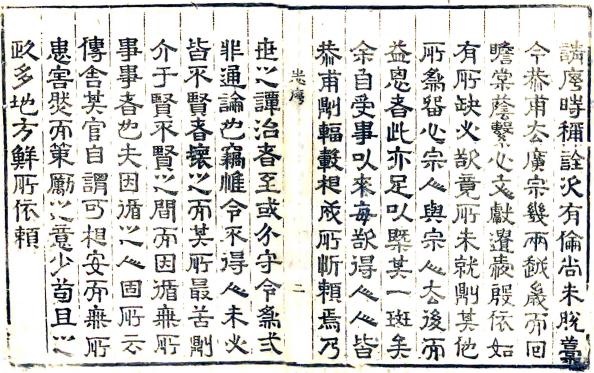 序時稱詮次有倫尚未脫藁
今恭甫去廣宗幾兩歲而回
瞻棠蔭繫心文獻遺殷依如
有所缺必欲竟所未就則其他
所為留心宗人與宗人去後而
益思者此亦足以槩其一斑矣
余自受事以來每欲得人人皆
恭甫則輻轂相成所忻賴焉乃
志序
二
世之譚治者至或分守令為弍
非通論也竊惟令不得人未必
皆不賢者壞之而其所最苦則
介于賢不賢之間而因循無所
事事者也夫因循之人固所云
傳舍其官自謂可相安而無所
患害然而策勵之意少苟且之
政多地方鮮所依賴